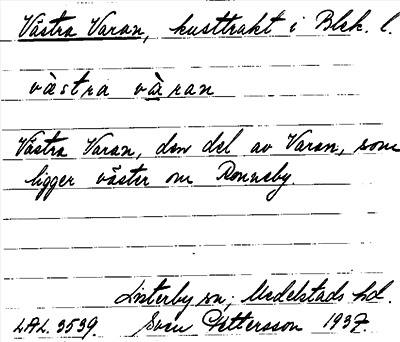 Västra Varan, kusttrakt i Blek. l.
västra varan
Västra Varan, den del av Varan, som
ligger väster om Ronneby.
Listerby sn, Medelstads hd.
LAL. 3539. Sven Pettersson 1937.